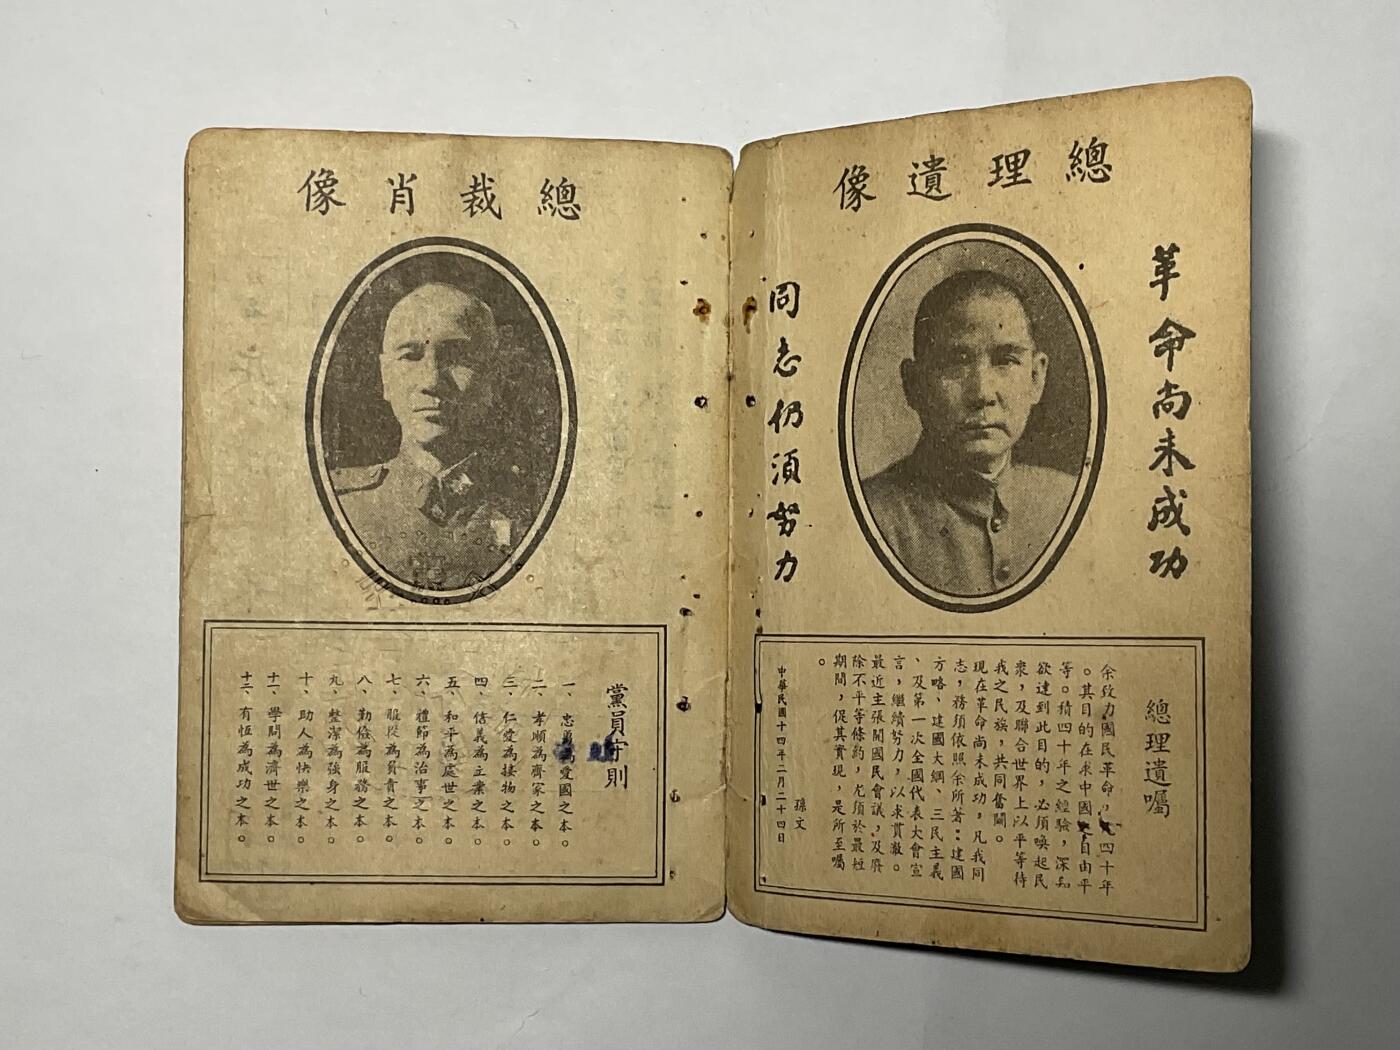 總理遺像
革命尚未成功
同志仍須努力
總理遺囑
余致力國民革命，凡四十年
。其目的在求中國之自由平
等。積四十年之經驗，深知
欲達到此目的，必須喚起民
衆，及聯合世界上以平等待
我之民族，共同奮鬭。
現在革命尚未成功，凡我同
志，務須依照余所著：建國
方略、建國大綱、三民主義
、及第一次全國代表大會宣
言，繼續努力，以求貫澈。
最近主張開國民會議，及廢
除不平等條約，尤須於最短
期間，促其實現，是所至囑
。
孫文
中華民國十四年二月二十四日
總裁肖像
黨員守則
一、忠勇為愛國之本。
二、孝順為齊家之本。
三、仁愛為接物之本。
四、信義為立業之本。
五、和平為處世之本。
六、禮節為治事之本。
七、服從為負責之本。
八、勤儉為服務之本。
九、整潔為強身之本。
十、助人為快樂之本。
十一、學問為濟世之本。
十二、有恆為成功之本。